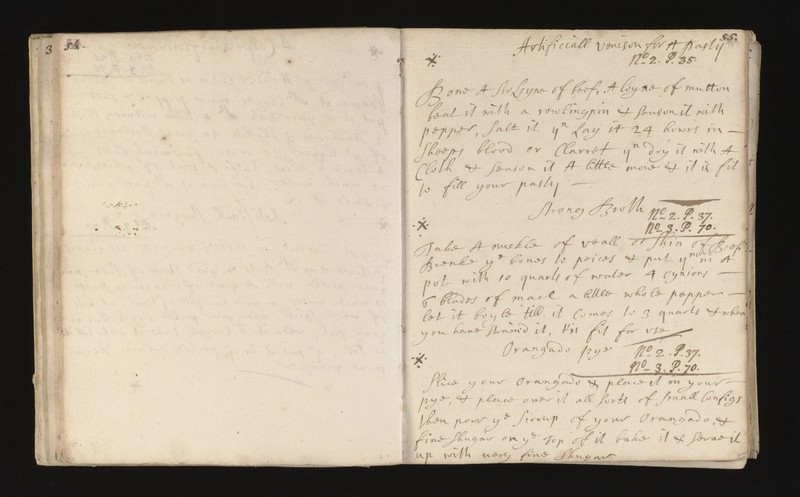 3 54.
55.
Artificiall venison for A pasty
No. 2. P. 35.
Bone A sirloyne of beef, A loyne of mutton
beat it with a rowlingpin & season it with
pepper, salt it. yn Lay it 24 howrs in
sheeps blood or Clarret yn dry it with A
Cloth & season it A little more & it is fit
to fill your pasty
Strong Broth No. 2. P. 37.
No. 3. P. 70.
Take A nuckle of veall or Shin of Beef
Breake ye bones to peices & put ym in A
pot with 10 quarts of water 4 oynions
6 blades of mace a little whole pepper
let it boyle till it comes to 3 quarts & when
you have straind it, tis fit for use
Orangado pye No. 2. P. 37.
No. 3. P. 70.
Slice your Orangado & place it in your
pye, & place over it all sorts of small Configs
then powr ye sirrup of your Orangado, &
fine shugar on ye top of it bake it & serve it
up with very fine shugar